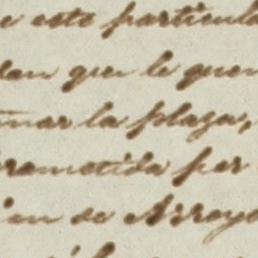 e este particula
dan que le quer
mar la plaza,
rometida por
ion de Arroyo